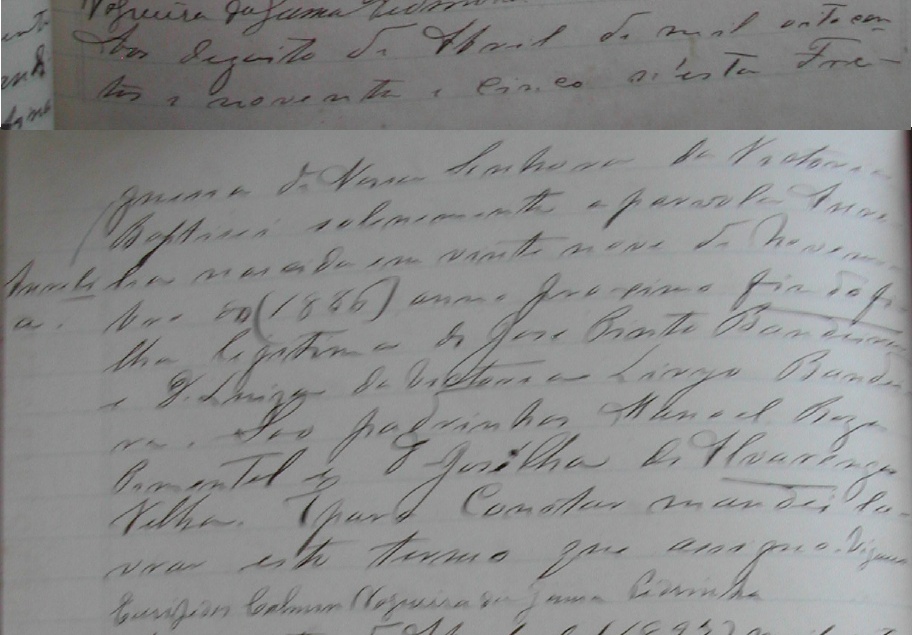 Nogueira da Gama
Aos dezoito de Abril de mil oitocen-
tos e noventa e cinco n'esta Fre-
guesia de Nossa Senhora da Victoria
Baptisei solenemente a parvola Aure
lia nascida em vinte nove de Novem
Aureli
a.
bro do (1886) anno proximo findo fi
lha legitima de José Pinto Bandeira
e D. Luiza da Victoria Bandei
ra. São padrinhos Manoel
Pimentel e D. de Alvarenga
Velha. E para Constar mandei la-
vrar este termo que assigno. Vigario
Eurípedes Calmon Nogueira da Gama